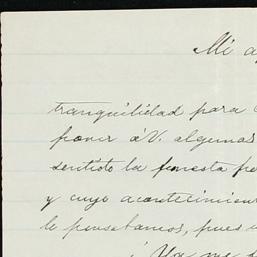 Mi a
tranquilidad para
poner á V. algunas
sentido la funesta
y cuyo acontecimien
le pensabamos, pues
¡ Ya me